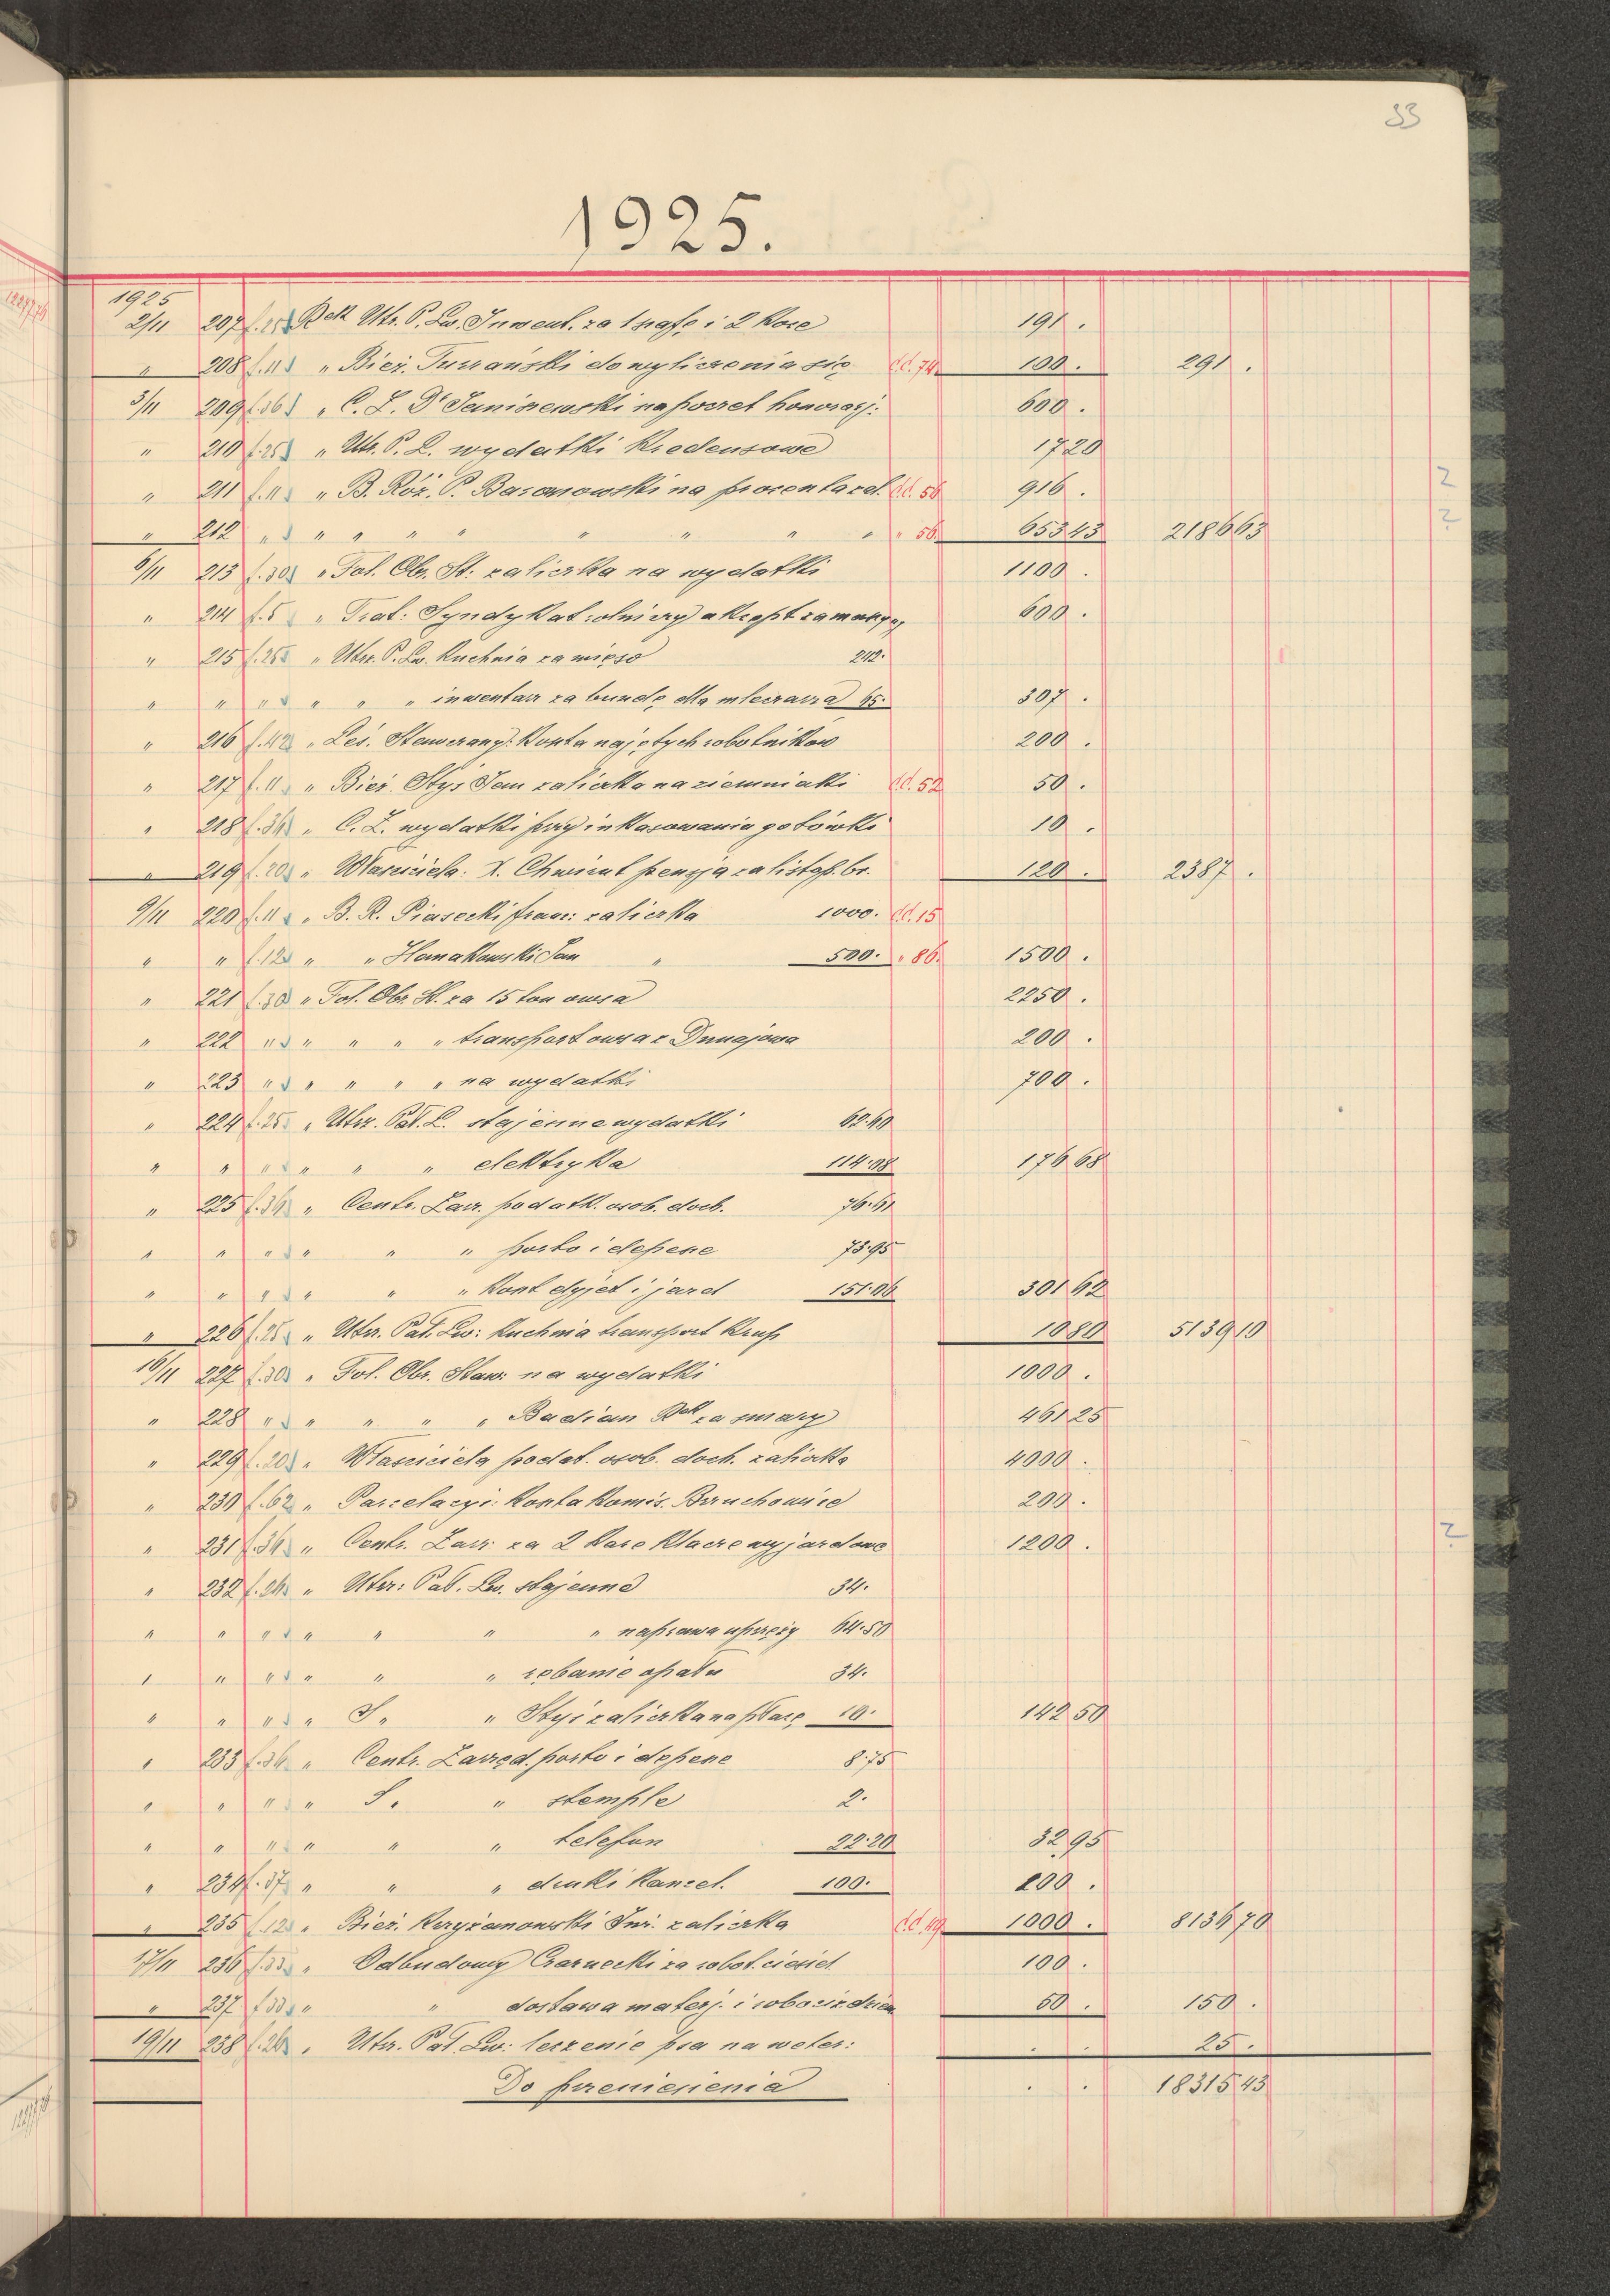 33
1925.
1925
2/11 207 f. 25 Rck Utr. P. Lw. Inwent. za 1 szafę i 2 Koze 191 .
" 208 f. 11 " Bież. Turzański do wyliczenia się d.d. 74. 100 . 291 .
3/11 209 f. 36 " C. Z. Dr na poczet honorarj: 600 .
" 210 f. 25 " Utr. P. L. wydatki Kredensowe 17 20
" 211 f. 11 " B. Róż. P. Baranowski na procenta d.d. 56 916 .
" 212 " " " " " " " " " " 56. 653 43 2186 63
6/11 213 f. 30 " Fol. Obr. St: zaliczka na wydatki 1100 .
" 214 f. 5 " Trat: Syndykat rolniczy akcept za 600 .
" 215 f. 25 " Utrz. P. Lw. Kuchnia za mięso 212.
" " " " " " inwentarz za bundę dla mleczarza 95. 307 .
" 216 f. 42 " Leś. Konta najętych robotników 200 .
" 217 f. 11 " Bież. Styś Jan zaliczka na ziemniaki d.d. 52 50 .
" 218 f. 36 " C. Z. wydatki przy inkasowaniu gotówki 10 .
" 219 f. 20 " Właściciela. X. pensja za listop. br. 120 . 2387 .
9/11 220 f. 11 " B. R. Piasecki Franc: zaliczka 1000. d.d. 15
" " f. 12 " " Hamakowski Jan " 500. " 86. 1500 .
" 221 f. 30 " Fol. Obr. St. za 15 ton owsa 2250 .
" 222 " " " " " transport owsa z Dunajowa 200 .
" 223 " " " " " na wydatki 700 .
" 224 f. 25 " Utrz. Pał. L. stajenne wydatki 62.60
" " " " " " elektryka 114.08 176 68
" 225 f. 36 " Centr. Zarz. podatk. osob. doch. 76.61
" " " " " " porto i depesze 73.95
" " " " " " Kont dyjet i jazd 151.06 301 62
" 226 f. 25 " Utrz. Pał. Lw: Kuchnia transport Krup 10 80 5139 10
16/11 227 f. 30 " Fol. Obr. Staw: na wydatki 1000 .
" 228 " " " " " Badian Rck za smary 461 25
" 229 f. 20 " Właściciela podat. osob. doch. zaliczka 4000 .
" 230 f. 62 " Parcelacyi: Konta Komis. Brzuchowice 200 .
" 231 f. 36 " Centr. Zarz: za 2 Kare Klacze wyjazdowe 1200 .
" 232 f. 26 " Utrz: Pał. Lw. stajenne 34.
" " " " " " " naprawa uprzęży 64.50
" " " " " " rębanie opału 34.
" " " " J " " Styś zaliczka na płacę 10. 142 50
" 233 f. 36 " Centr. Zarząd. porto i depesze 8.75
" " " " " " stemple 2.
" " " " " " telefon 22.20 32 95
" 234 f. 37 " " " druki Kancel. 100. 100 .
" 235 f. 12 " Bież. Kryżanowski Inż. zaliczka d.d. 49 1000 . 8136 70
17/11 236 f. 33 " Odbudowy Czarnecki za robot. ciesiel. 100 .
" 237 f. 33 " " dostawa materj. i 50 . 150 .
19/11 238 f. 26 " Utrz. Pał. Lw: leczenie psa na weter: . . 25 .
Do przeniesienia . . 18315 43